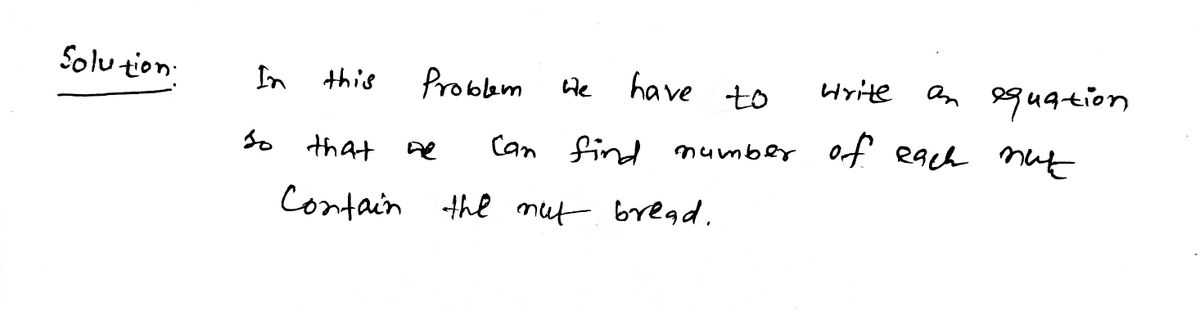 Solution:
In this Problem we have to write an equation
so that we can find number of each nut
Contain the nut bread.